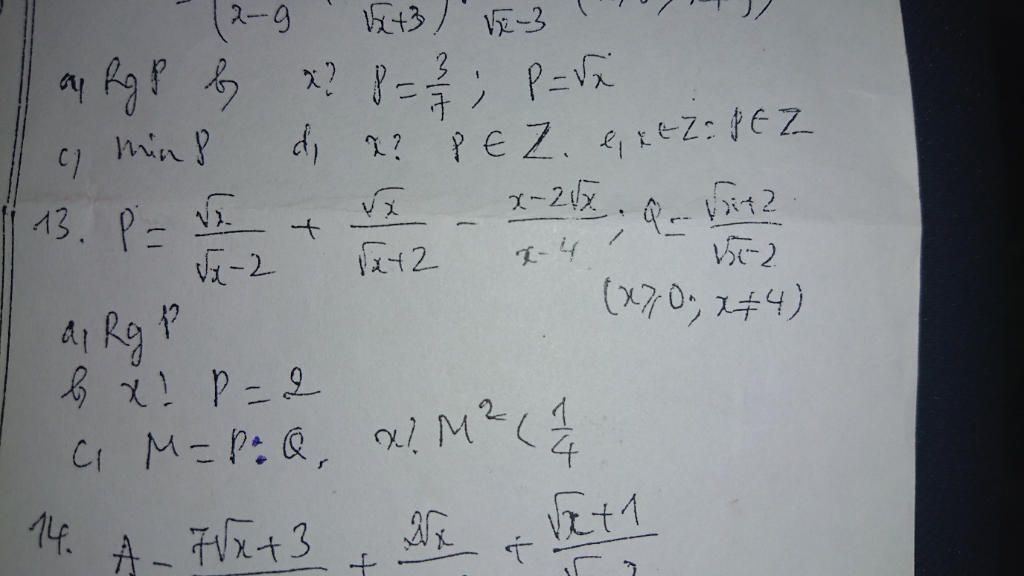 = (x-9 √x+3) √x-3
a, Rg P b, x? P = 3/7 ; P = √x
c, min P d, x? P ∈ Z. e, x ∈ Z: P ∈ Z
13. P = √x/(√x-2) + √x/(√x+2) - (x-2√x)/(x-4) ; Q = (√x+2)/(√x-2)
(x ≥ 0; x ≠ 4)
a, Rg P
b, x? P = 2
c, M = P : Q. x? M² < 1/4
14. A = 7√x+3 + 2√x + √x+1